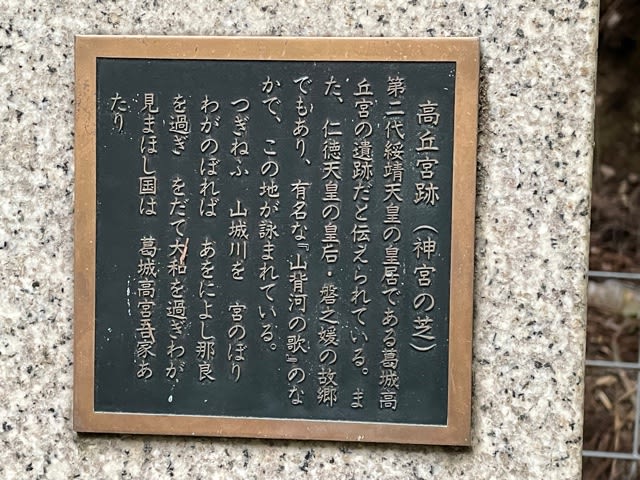 高丘宮跡（神宮の芝）
第二代綏靖天皇の皇居である葛城高
丘宮の遺跡だと伝えられている。ま
た、仁徳天皇の皇后・磐之媛の故郷
でもあり、有名な『山背河の歌』のな
かで、この地が詠まれている。
つぎねふ　山城川を　宮のぼり
わがのぼれば　あをによし那良
を過ぎ　をだて大和を過ぎわが
見まほし国は　葛城高宮吾家あ
たり